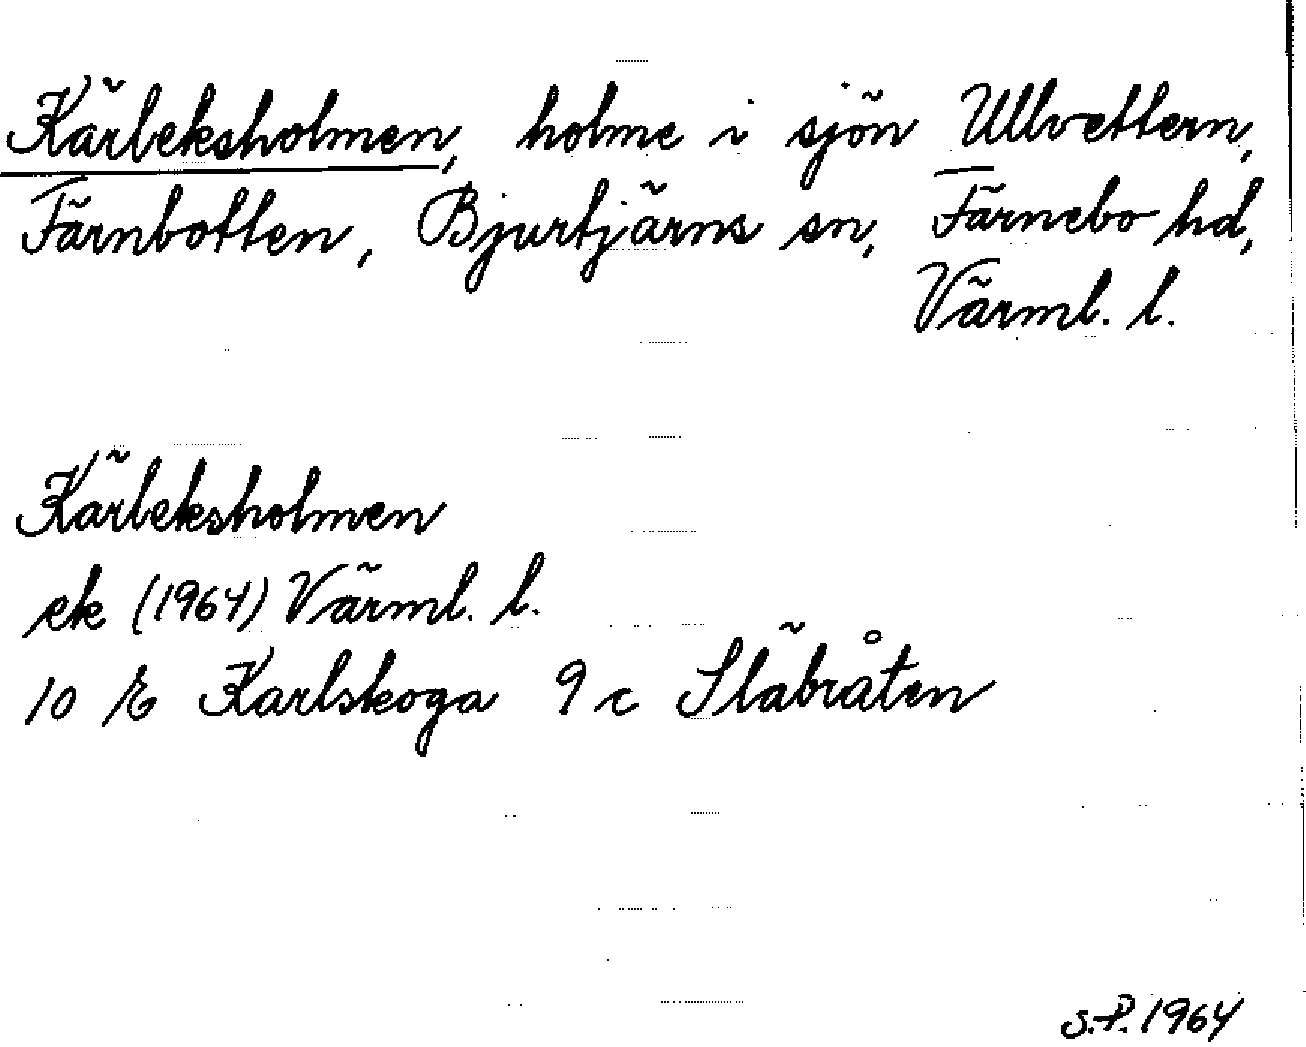 Kärleksholmen, holme i sjön Ullvettern,
Färnbotten, Bjurtjärns sn, Färnebo hd,
Värml. l.
Kärleksholmen
ek (1964) Värml. l.
10 E Karlskoga 9 c Släbråten
S.P. 1964